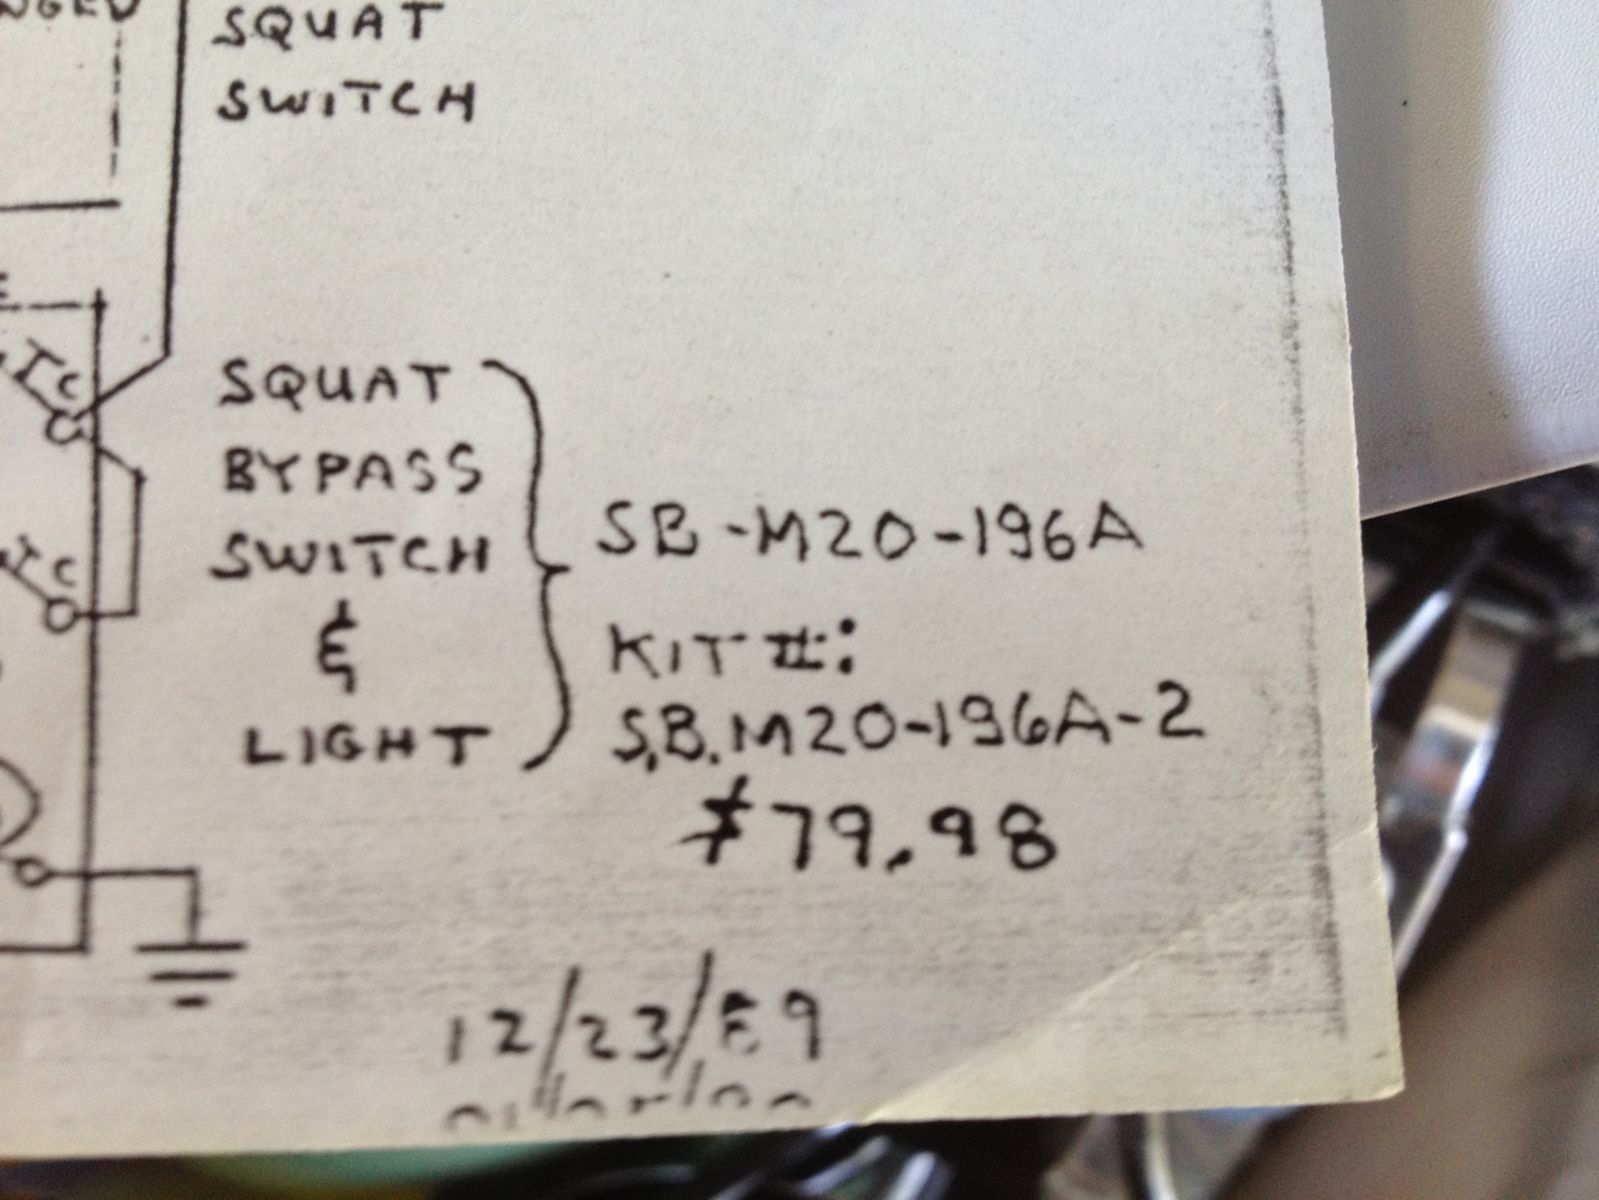 SQUAT
SWITCH
TC
SQUAT
BYPASS
SWITCH
&
LIGHT
TC
SB-M20-196A
KIT II:
S.B.M20-196A-2
$79.98
12/23/89